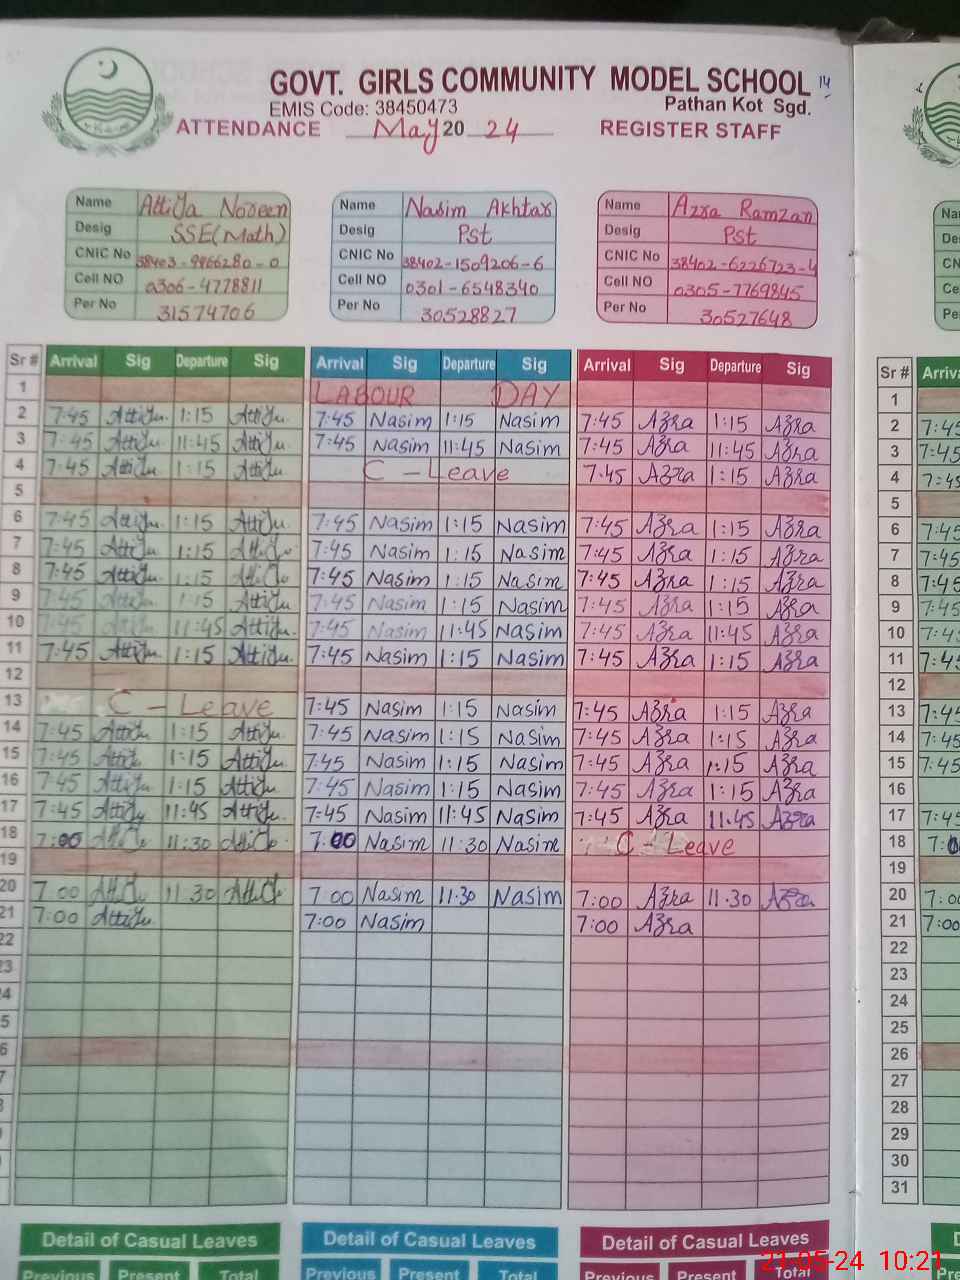 GOVT. GIRLS COMMUNITY MODEL SCHOOL 14
EMIS Code: 38450473 Pathan Kot Sgd.
ATTENDANCE May 20 24 REGISTER STAFF
Name Attiya Noreen Name Nasim Akhtar Name Azra Ramzan
Desig SSE(Math) Desig Pst Desig Pst
CNIC No 38403-9966280-0 CNIC No 38402-1509206-6 CNIC No 38402-6226723-4
Cell NO 0306-4778811 Cell NO 0301-6548340 Cell NO 0305-7769845
Per No 31574706 Per No 30528827 Per No 30527648
Sr # Arrival Sig Departure Sig Arrival Sig Departure Sig Arrival Sig Departure Sig Sr #
1 LABOUR DAY 1
2 7:45 Attiya 1:15 Attiya 7:45 Nasim 1:15 Nasim 7:45 Azra 1:15 Azra 2 7:45
3 7:45 Attiya 11:45 Attiya 7:45 Nasim 11:45 Nasim 7:45 Azra 11:45 Azra 3 7:45
4 7:45 Attiya 1:15 Attiya C - Leave 7:45 Azra 1:15 Azra 4 7:45
5 5
6 7:45 Attiya 1:15 Attiya 7:45 Nasim 1:15 Nasim 7:45 Azra 1:15 Azra 6 7:45
7 7:45 Attiya 1:15 Attiya 7:45 Nasim 1:15 Nasim 7:45 Azra 1:15 Azra 7 7:45
8 7:45 Attiya 1:15 Attiya 7:45 Nasim 1:15 Nasim 7:45 Azra 1:15 Azra 8 7:45
9 7:45 Attiya 1:15 Attiya 7:45 Nasim 1:15 Nasim 7:45 Azra 1:15 Azra 9 7:45
10 7:45 Attiya 11:45 Attiya 7:45 Nasim 11:45 Nasim 7:45 Azra 11:45 Azra 10 7:45
11 7:45 Attiya 1:15 Attiya 7:45 Nasim 1:15 Nasim 7:45 Azra 1:15 Azra 11 7:45
12 12
13 C - Leave 7:45 Nasim 1:15 Nasim 7:45 Azra 1:15 Azra 13 7:45
14 7:45 Attiya 1:15 Attiya 7:45 Nasim 1:15 Nasim 7:45 Azra 1:15 Azra 14 7:45
15 7:45 Attiya 1:15 Attiya 7:45 Nasim 1:15 Nasim 7:45 Azra 1:15 Azra 15 7:45
16 7:45 Attiya 1:15 Attiya 7:45 Nasim 1:15 Nasim 7:45 Azra 1:15 Azra 16
17 7:45 Attiya 11:45 Attiya 7:45 Nasim 11:45 Nasim 7:45 Azra 11:45 Azra 17 7:45
18 7:00 Attiya 11:30 Attiya 7:00 Nasim 11:30 Nasim C - Leave 18
19 19
20 7:00 Attiya 11:30 Attiya 7:00 Nasim 11:30 Nasim 7:00 Azra 11:30 Azra 20 7:00
21 7:00 Attiya 7:00 Nasim 7:00 Azra 21 7:00
22 22
23 23
24
25
26 26
27
28
29
30
31
Detail of Casual Leaves Detail of Casual Leaves Detail of Casual Leaves
Previous Present Total Previous Present Total Previous Present Total
21-05-24 10:21